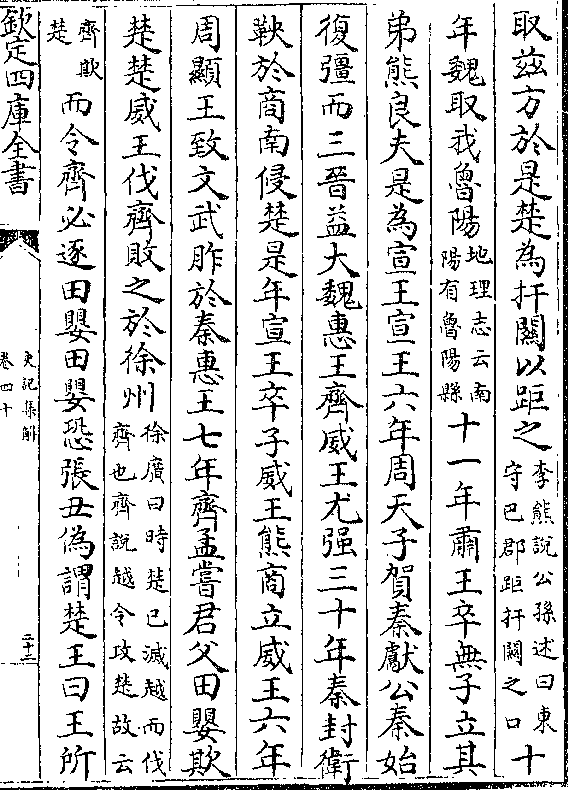 取兹方於是楚為扞關以距之李熊說公孫述曰東守巴郡距扞關之口十
年魏取我魯陽地理志云南陽有魯陽縣十一年肅王卒無子立其
弟熊良夫是為宣王宣王六年周天子賀秦獻公秦始
復彊而三晉益大魏惠王齊威王尤强三十年秦封衛
鞅於商南侵楚是年宣王卒子威王熊商立威王六年
周顯王致文武胙於秦惠王七年齊孟嘗君父田嬰欺
楚楚威王伐齊敗之於徐州徐廣曰時楚已滅越而伐齊也齊說越令攻楚故云
齊欺楚而令齊必逐田嬰田嬰恐張丑偽謂楚王曰王所
欽定四庫全書
史記集解
卷四十
二十二